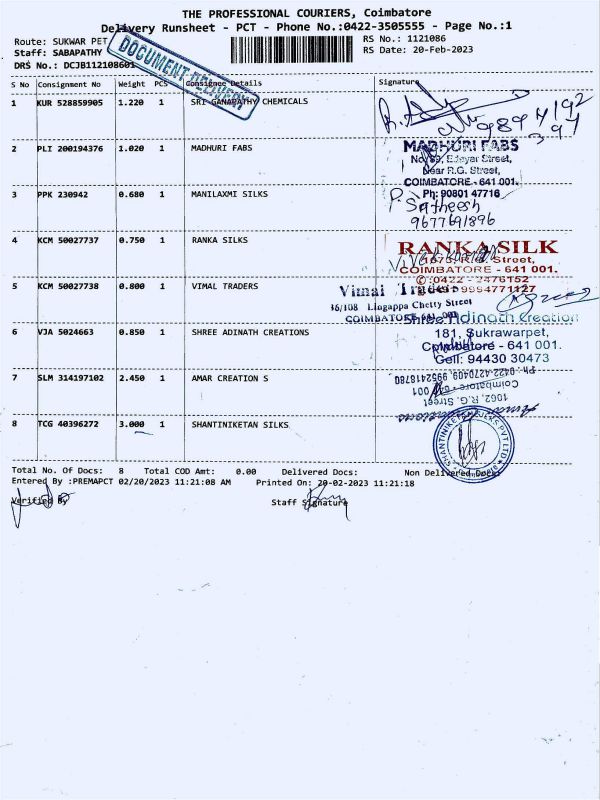 THE PROFESSIONAL COURIERS, Coimbatore
Delivery Runsheet - PCT - Phone No.:0422-3505555 - Page No.:1
Route: SUKWAR PET
RS No.: 1121086
Staff: SABAPATHY
RS Date: 20-Feb-2023
DRS No.: DCJB112108601
DOCUMENT DELIVERY
S No Consignment No Weight PCS Consignee Details Signature
1 KUR 528859905 1.220 1 SRI GANAPATHY CHEMICALS
2 PLI 200194376 1.020 1 MADHURI FABS
MADHURI FABS
Near R.G. Street,
COIMBATORE - 641 001.
Ph: 90801 47716
3 PPK 230942 0.680 1 MANILAXMI SILKS
P. Satheesh
9677691896
4 KCM 50027737 0.750 1 RANKA SILKS
RANKA SILK
1075, R.G. Street,
COIMBATORE - 641 001.
5 KCM 50027738 0.800 1 VIMAL TRADERS
Vimal Traders
Lingappa Chetty Street
COIMBATORE - 641 001
6 VJA 5024663 0.850 1 SHREE ADINATH CREATIONS
Shree Adinath Creation
181, Sukrawarpet,
Coimbatore - 641 001.
Cell: 94430 30473
7 SLM 314197102 2.450 1 AMAR CREATION S
Ph: 0422-4270409, 9952418780
Coimbatore - 641 001
1062, R.G. Street,
8 TCG 40396272 3.000 1 SHANTINIKETAN SILKS
Total No. Of Docs: 8 Total COD Amt: 0.00 Delivered Docs: Non Delivered Docs:
Entered By :PREMAPCT 02/20/2023 11:21:08 AM Printed On: 20-02-2023 11:21:18
Verified By Staff Signature